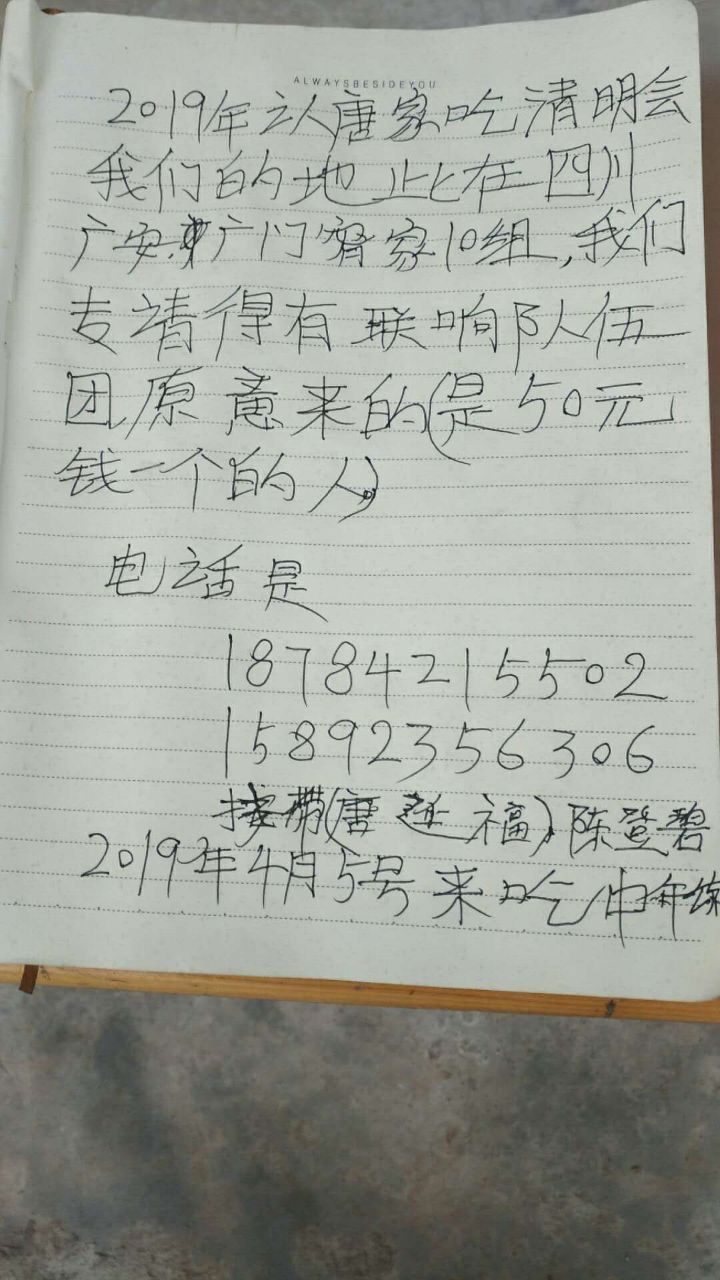 ALWAYSBESIDEYOU
2019年认唐家吃清明会
我们的地止比在四川
广安广门窝家10组,我们
专请得有联响队伍
团原意来的(是50元
钱一个的人)
电话是
18784215502
15892356306
接带(唐延福),陈登碧
2019年4月5号来吃中年饭